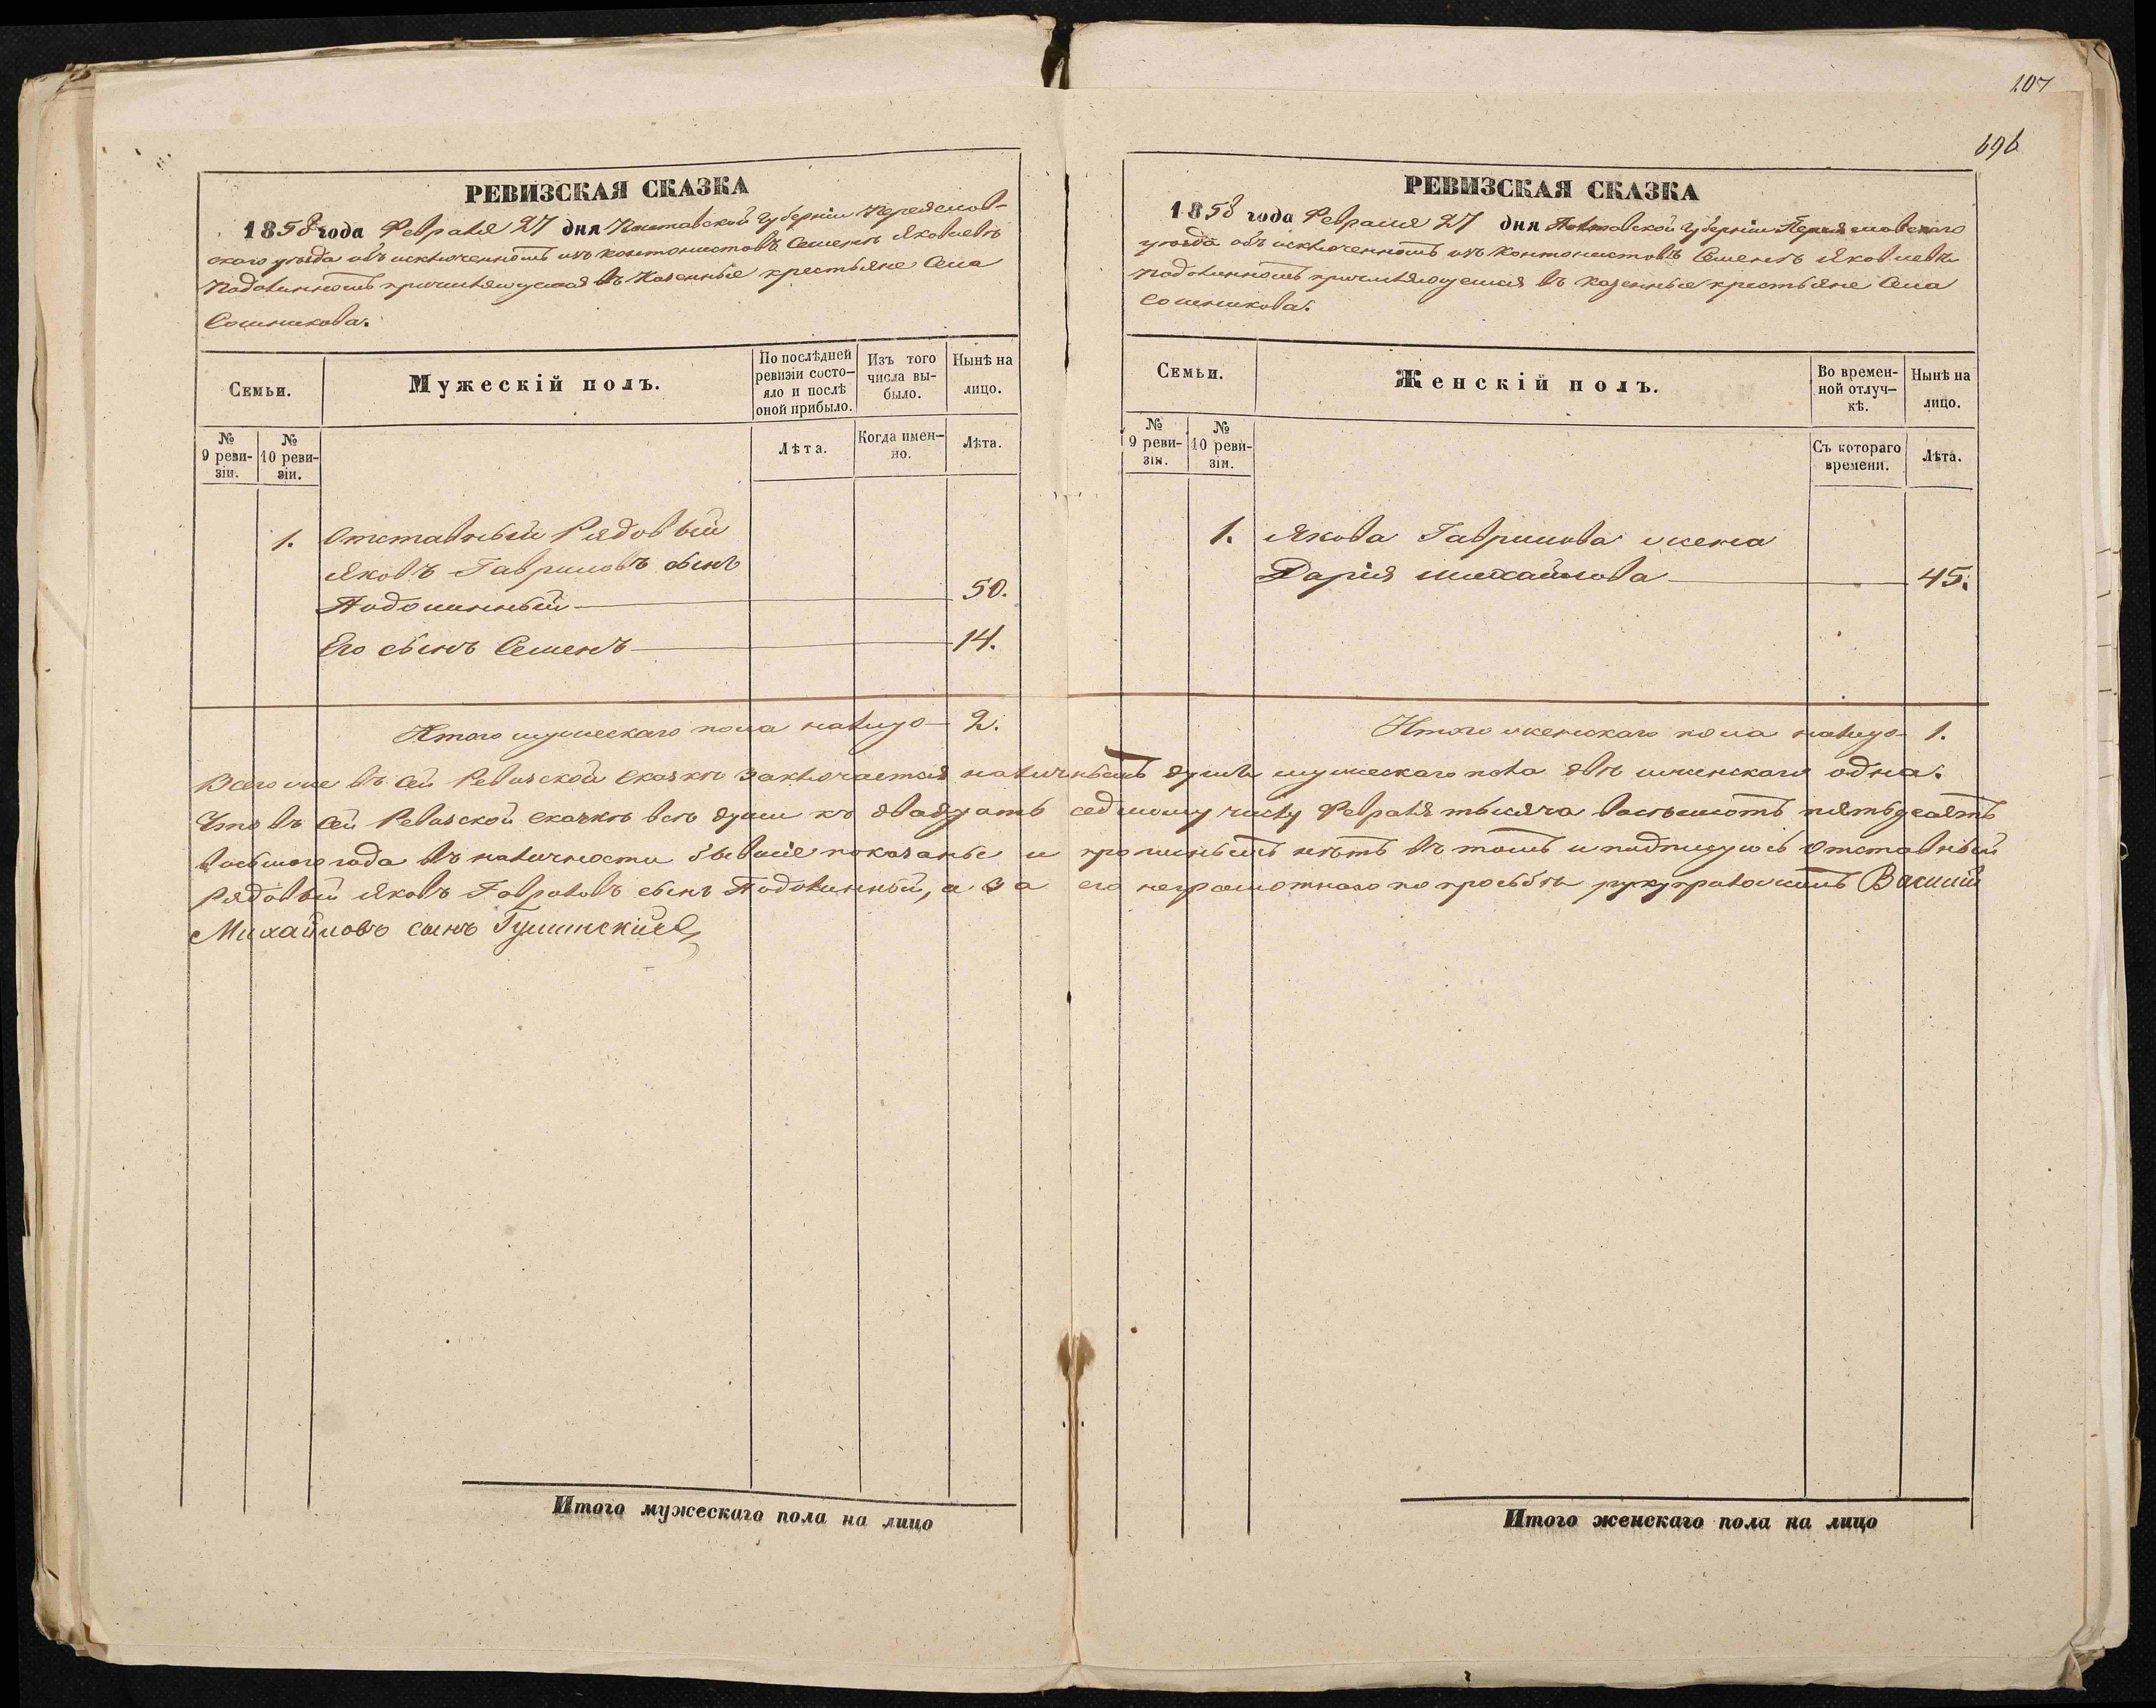 107
696
РЕВИЗСКАЯ СКАЗКА
1858 года Февраля 27 дня Полтавской Губерніи Переяслов-
скаго уѣзда объ исключенномъ изъ кантонистовъ Семенѣ Яковлевѣ
Подолинномъ причисляющемся въ Казенные крестьяне Села
Сошникова.
Семьи.
Мужескій полъ.
По послѣдней ревизіи состо-яло и послѣ оной прибыло.
Изъ того числа вы-было.
Нынѣ на лицо.
№ 9 реви-зіи.
№ 10 реви-зіи.
Лѣта.
Когда имен-но.
Лѣта.
1. Отставный Рядовый
Яковъ Гавриловъ сынъ
Подолинный 50.
Его сынъ Семенъ 14.
Итого мужескаго пола налицо 2.
РЕВИЗСКАЯ СКАЗКА
1858 года Февраля 27 дня Полтавской Губерніи Переясловскаго
уѣзда объ исключенномъ изъ кантонистовъ Семенѣ Яковлевѣ
Подолинномъ причисляющемся въ казенные крестьяне Села
Сошникова.
Семьи.
Женскій полъ.
Во времен-ной отлуч-кѣ.
Нынѣ на лицо.
№ 9 реви-зіи.
№ 10 реви-зіи.
Съ котораго времени.
Лѣта.
1. Якова Гаврилова жена
Дарія Михайлова 45.
Итого женскаго пола налицо 1.
Всего же въ сей Ревизской сказкѣ заключается наличныхъ душъ мужескаго пола двѣ женскаго одна.
Что въ сей Ревизской сказкѣ всѣ души къ двадцать седмому числу Февраля тысяча восемьсотъ пятьдесятъ
восьмого года въ наличности бывшіе показаны и прописныхъ нѣтъ въ томъ и подпишуюсь Отставный
Рядовый Яковъ Гавриловъ сынъ Подолинный, а за его неграмотнаго по прозьбѣ Василій
Михайловъ сынъ
Итого мужескаго пола на лицо
Итого женскаго пола на лицо